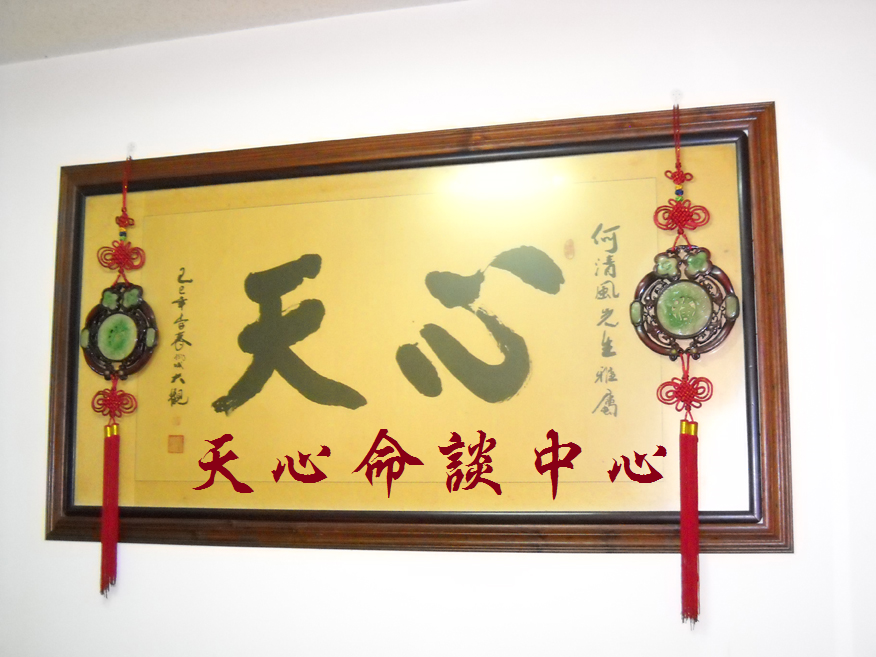 何清風先生雅屬
天心
己巳年春大觀
天心命談中心